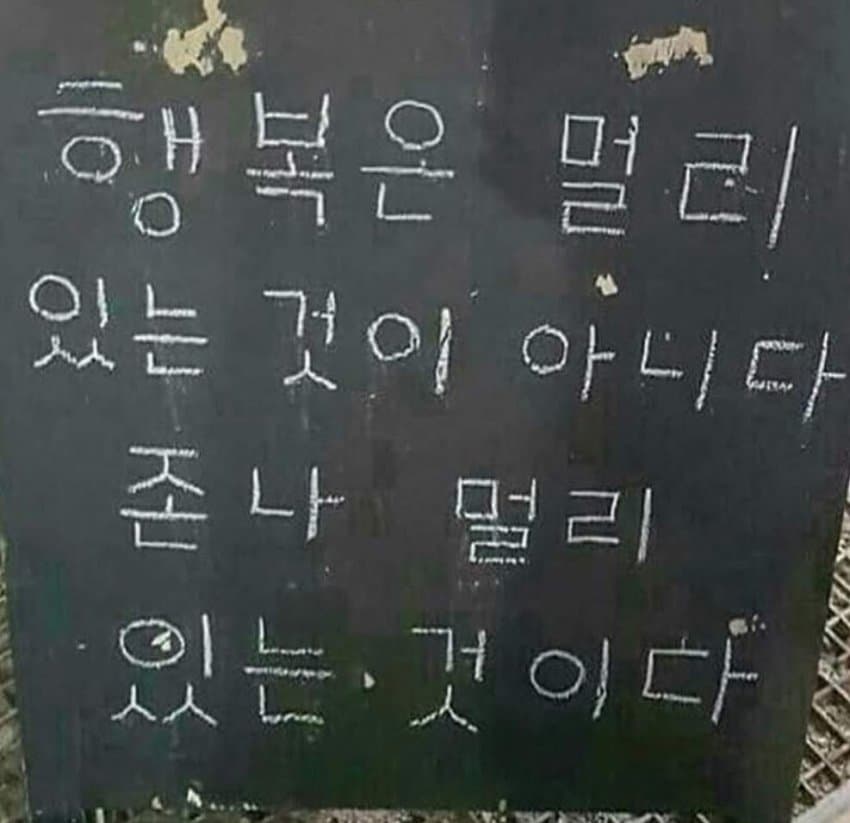 행복은 멀리
있는 것이 아니다
존나 멀리
있는 것이다